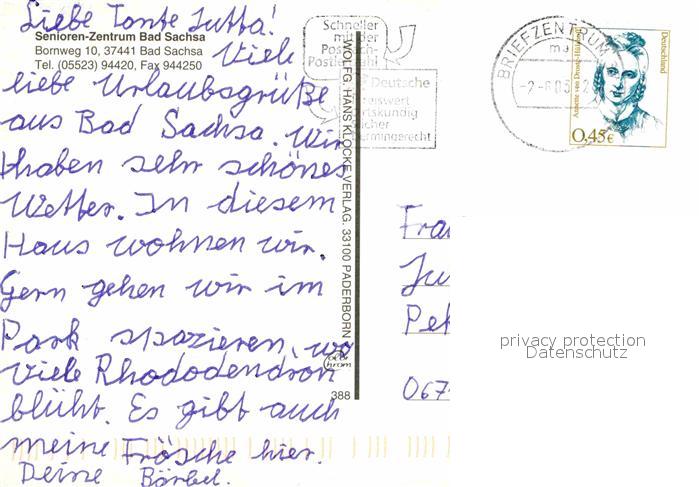 Liebe Tante Jutta!
Senioren-Zentrum Bad Sachsa
Bornweg 10, 37441 Bad Sachsa
Tel. (05523) 94420, Fax 944250
Viele
liebe Urlaubsgrüße
aus Bad Sachsa. Wir
haben sehr schönes
Wetter. In diesem
Haus wohnen wir.
Gern gehen wir im
Park spazieren, wo
viele Rhododendron
blüht. Es gibt auch
meine Frösche hier.
Deine Bärbel.
WOLFG. HANS KLOCKE VERLAG. 33100 PADERBORN
388
Schneller
mit der
Deutsche
BRIEFZENTRUM
Deutschland
0,45€
Fra
Ju
Pek
067
privacy protection
Datenschutz